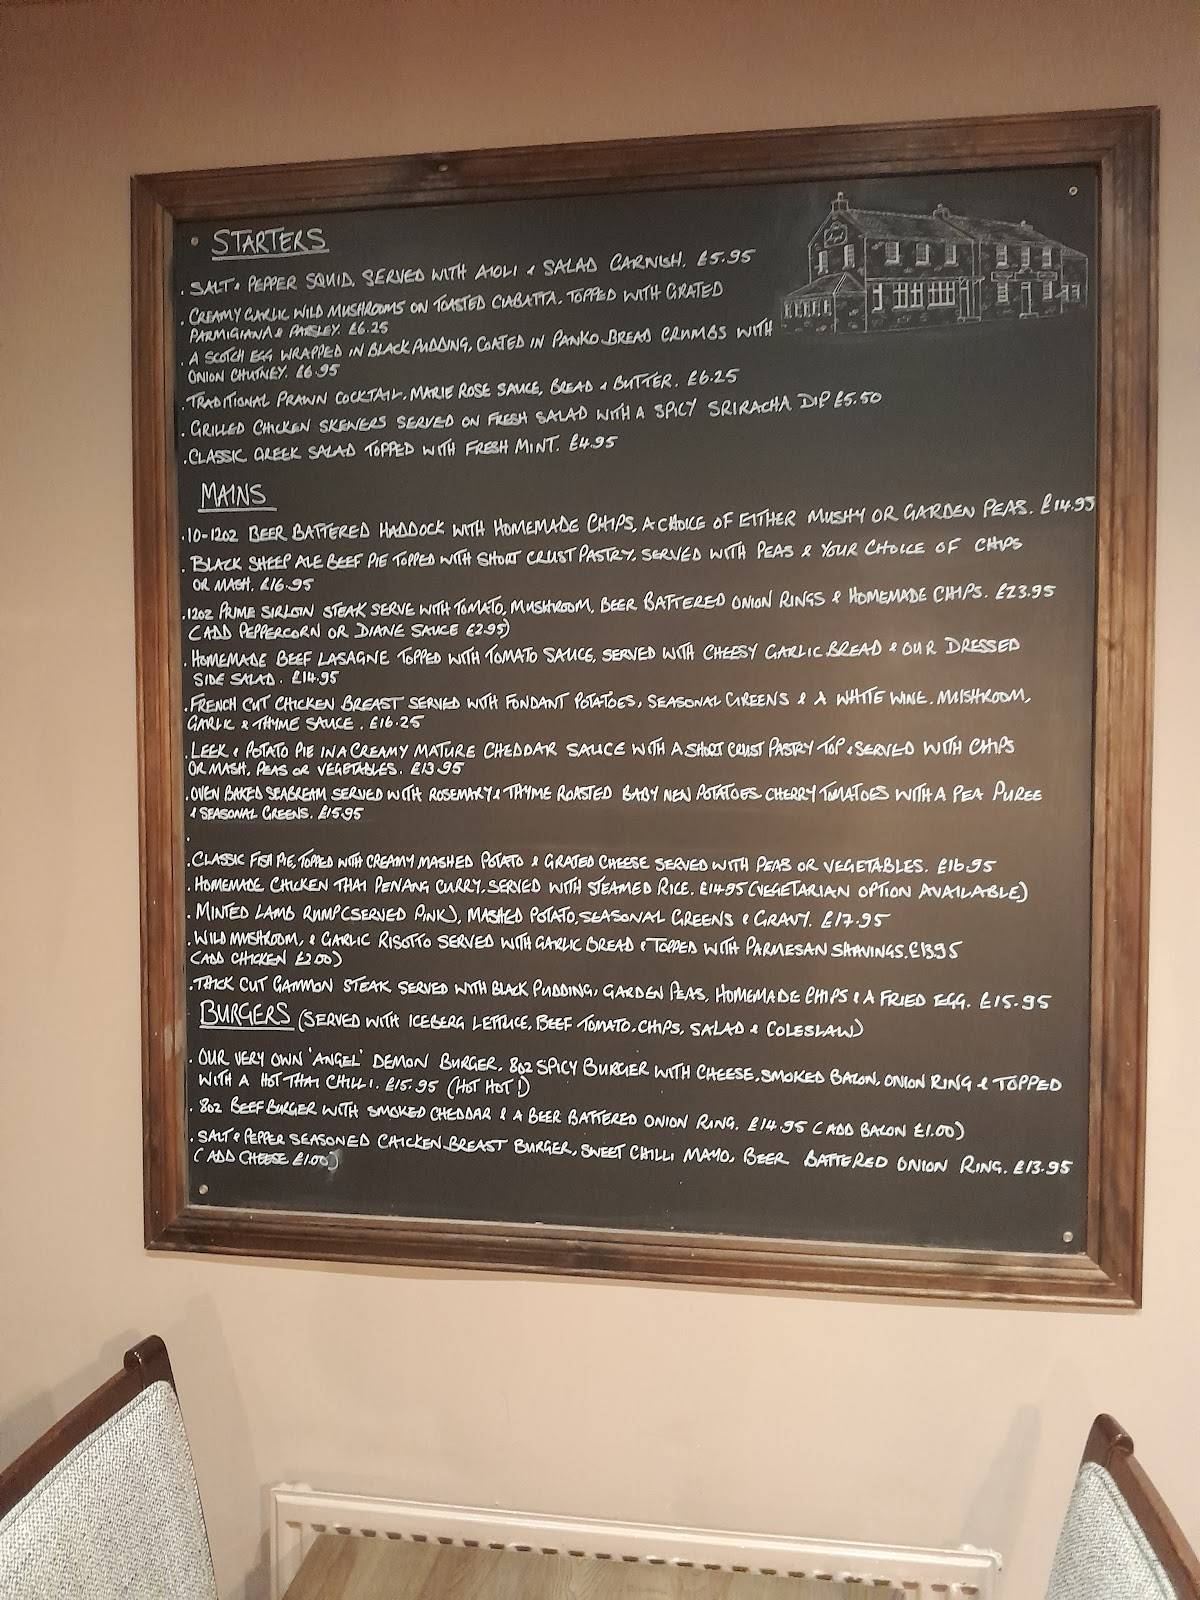 STARTERS
. SALT & PEPPER SQUID, SERVED WITH AIOLI & SALAD GARNISH. £5.95
. CREAMY GARLIC WILD MUSHROOMS ON TOASTED CIABATTA. TOPPED WITH GRATED
PARMIGIANA & PARSLEY. £6.25
. A SCOTCH EGG WRAPPED IN BLACK PUDDING, COATED IN PANKO BREAD CRUMBS WITH
ONION CHUTNEY. £6.95
. TRADITIONAL PRAWN COCKTAIL, MARIE ROSE SAUCE, BREAD & BUTTER. £6.25
. GRILLED CHICKEN SKEWERS SERVED ON FRESH SALAD WITH A SPICY SRIRACHA DIP £5.50
. CLASSIC GREEK SALAD TOPPED WITH FRESH MINT. £4.95
MAINS
. 10-12OZ BEER BATTERED HADDOCK WITH HOMEMADE CHIPS, A CHOICE OF EITHER MUSHY OR GARDEN PEAS. £14.95
. BLACK SHEEP ALE BEEF PIE TOPPED WITH SHORT CRUST PASTRY, SERVED WITH PEAS & YOUR CHOICE OF CHIPS
OR MASH. £16.95
. 12OZ PRIME SIRLOIN STEAK SERVE WITH TOMATO, MUSHROOM, BEER BATTERED ONION RINGS & HOMEMADE CHIPS. £23.95
(ADD PEPPERCORN OR DIANE SAUCE £2.95)
. HOMEMADE BEEF LASAGNE TOPPED WITH TOMATO SAUCE, SERVED WITH CHEESY GARLIC BREAD & OUR DRESSED
SIDE SALAD. £14.95
. FRENCH CUT CHICKEN BREAST SERVED WITH FONDANT POTATOES, SEASONAL GREENS & A WHITE WINE, MUSHROOM,
GARLIC & THYME SAUCE. £16.25
. LEEK & POTATO PIE IN A CREAMY MATURE CHEDDAR SAUCE WITH A SHORT CRUST PASTRY TOP & SERVED WITH CHIPS
OR MASH, PEAS OR VEGETABLES. £13.95
. OVEN BAKED SEABREAM SERVED WITH ROSEMARY & THYME ROASTED BABY NEW POTATOES CHERRY TOMATOES WITH A PEA PUREE
& SEASONAL GREENS. £15.95
.
. CLASSIC FISH PIE, TOPPED WITH CREAMY MASHED POTATO & GRATED CHEESE SERVED WITH PEAS OR VEGETABLES. £16.95
. HOMEMADE CHICKEN THAI PENANG CURRY. SERVED WITH STEAMED RICE. £14.95 (VEGETARIAN OPTION AVAILABLE)
. MINTED LAMB RUMP (SERVED PINK), MASHED POTATO, SEASONAL GREENS & GRAVY. £17.95
. WILD MUSHROOM, & GARLIC RISOTTO SERVED WITH GARLIC BREAD & TOPPED WITH PARMESAN SHAVINGS. £13.95
(ADD CHICKEN £2.00)
. THICK CUT GAMMON STEAK SERVED WITH BLACK PUDDING, GARDEN PEAS, HOMEMADE CHIPS & A FRIED EGG. £15.95
BURGERS (SERVED WITH ICEBERG LETTUCE, BEEF TOMATO, CHIPS, SALAD & COLESLAW)
. OUR VERY OWN 'ANGEL' DEMON BURGER, 8OZ SPICY BURGER WITH CHEESE, SMOKED BACON, ONION RING & TOPPED
WITH A HOT THAI CHILLI. £15.95 (HOT HOT!)
. 8OZ BEEF BURGER WITH SMOKED CHEDDAR & A BEER BATTERED ONION RING. £14.95 (ADD BACON £1.00)
. SALT & PEPPER SEASONED CHICKEN BREAST BURGER, SWEET CHILLI MAYO, BEER BATTERED ONION RING. £13.95
(ADD CHEESE £1.00)